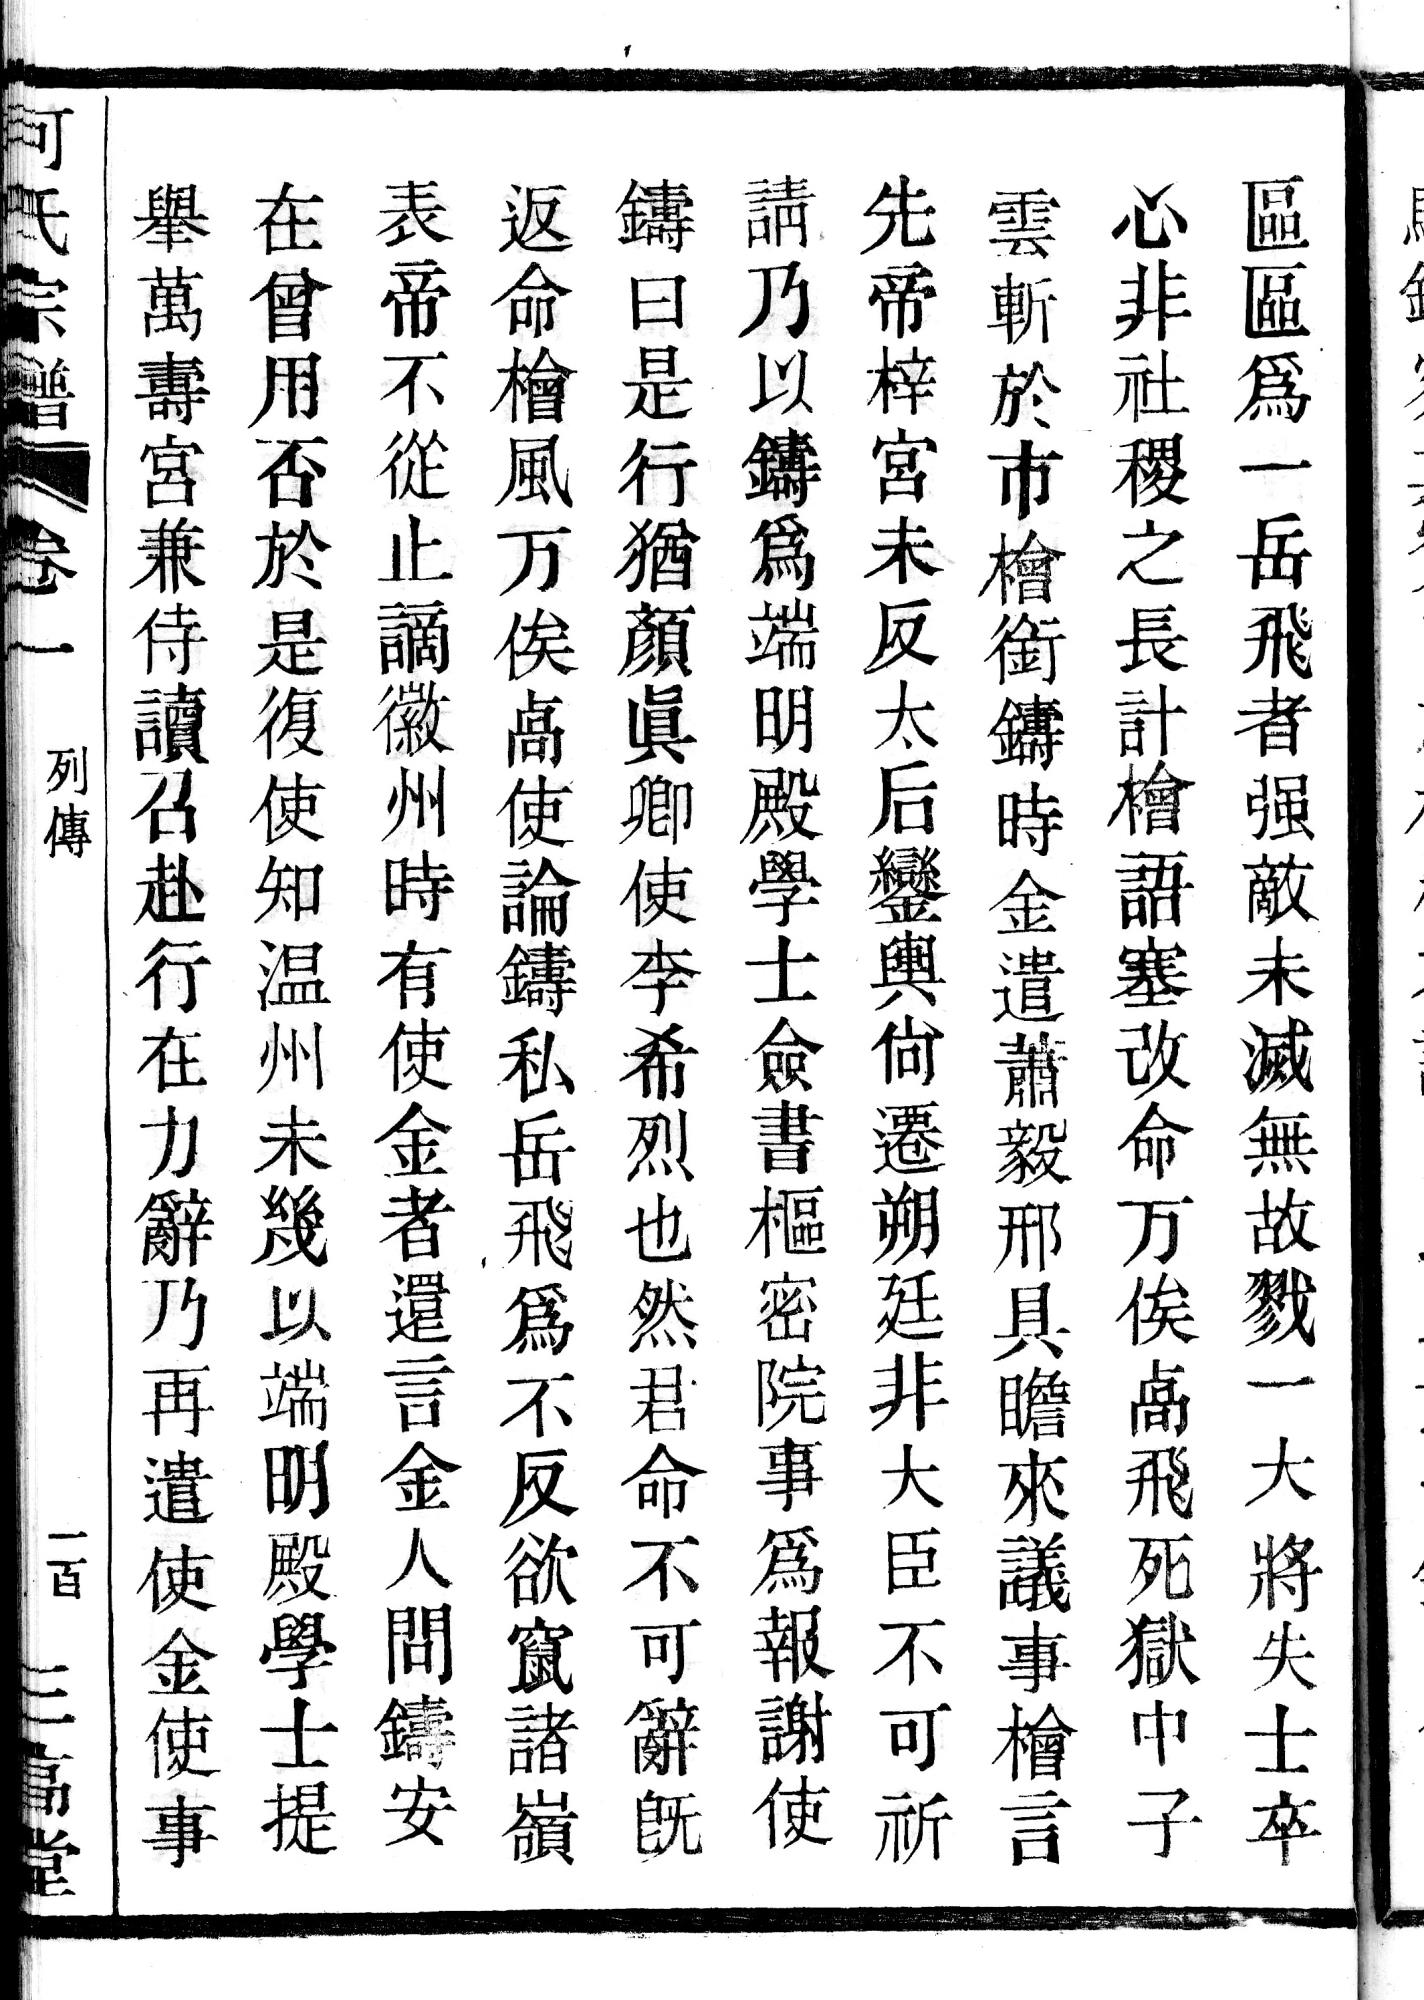 區區爲一岳飛者强敵未滅無故戮一大將失士卒
心非社稷之長計檜語塞改命万俟卨飛死獄中子
雲斬於市檜銜鑄時金遣蕭毅邢具瞻來議事檜言
先帝梓宮未反太后鑾輿尙遷朔廷非大臣不可祈
請乃以鑄爲端明殿學士僉書樞密院事爲報謝使
鑄曰是行猶顏眞卿使李希烈也然君命不可辭旣
返命檜風万俟卨使論鑄私岳飛爲不反欲竄諸嶺
表帝不從止謫徽州時有使金者還言金人問鑄安
在曾用否於是復使知温州未幾以端明殿學士提
舉萬壽宮兼侍讀召赴行在力辭乃再遣使金使事
何氏宗譜 卷一 列傳 一百 三高堂